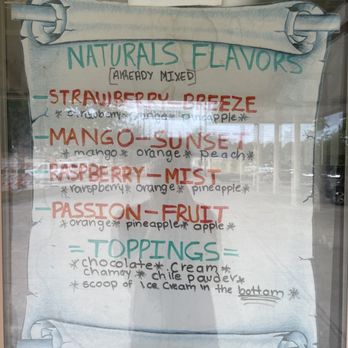 NATURALS FLAVORS
[ALREADY MIXED]
-STRAWBERRY-BREEZE
*strawberry* orange* pineapple*
-MANGO-SUNSET
*mango* orange* peach*
-RASPBERRY-MIST
*raspberry* orange* pineapple*
-PASSION-FRUIT
*orange* pineapple* apple*
=TOPPINGS=
*chocolate* cream*
chamoy* chile pauder*
*scoop of ice cream in the bottom*